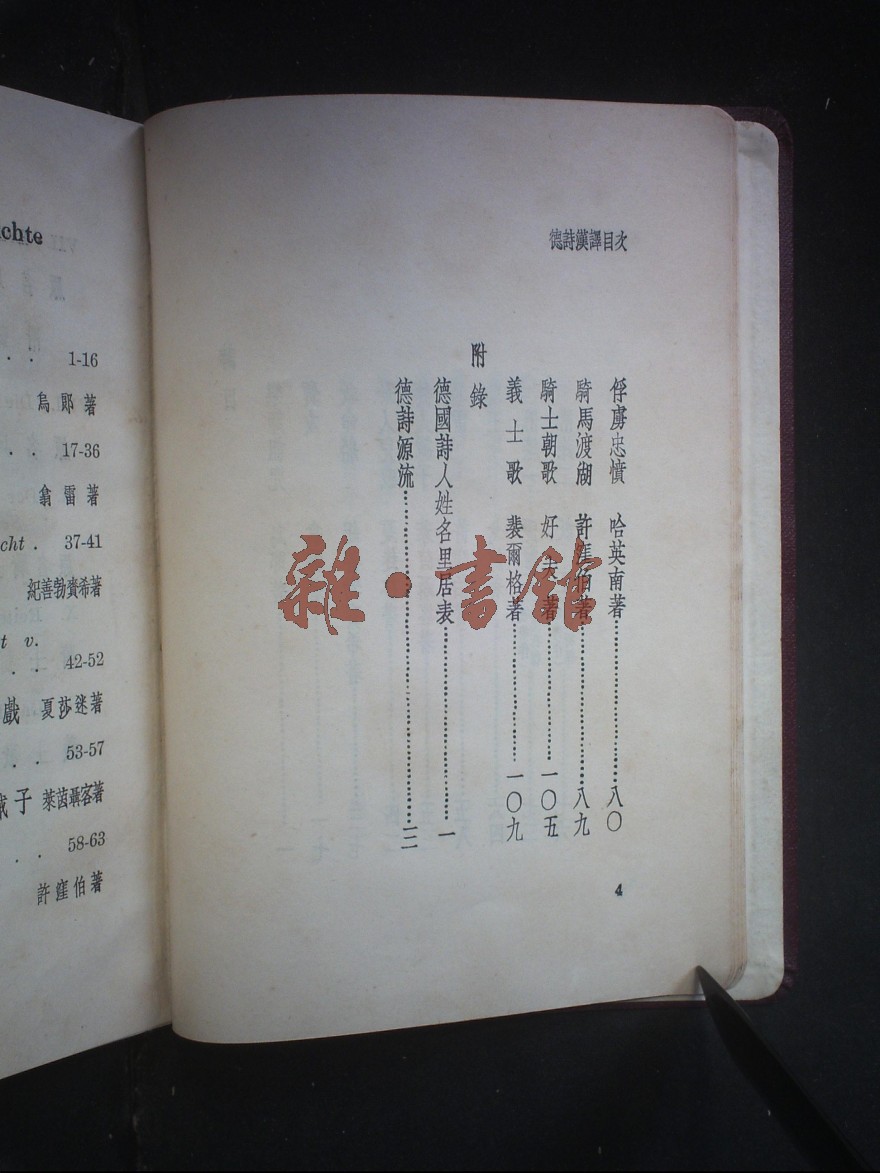 chte
. . 1-16
烏郎著
. . 17-36
翁雷著
cht . 37-41
紀善勃賚希著
t v.
. . 42-52
戲 夏莎迷著
. . 53-57
子 萊茵聶客著
. . 58-63
許窪伯著
德詩漢譯目次
俘虜忠憤 哈英南著……八〇
騎馬渡湖 許窪伯著……八九
騎士朝歌 好夫著……一〇五
義士歌 裴爾格著……一〇九
附錄
德國詩人姓名里居表……一
德詩源流……
4
雜·書館